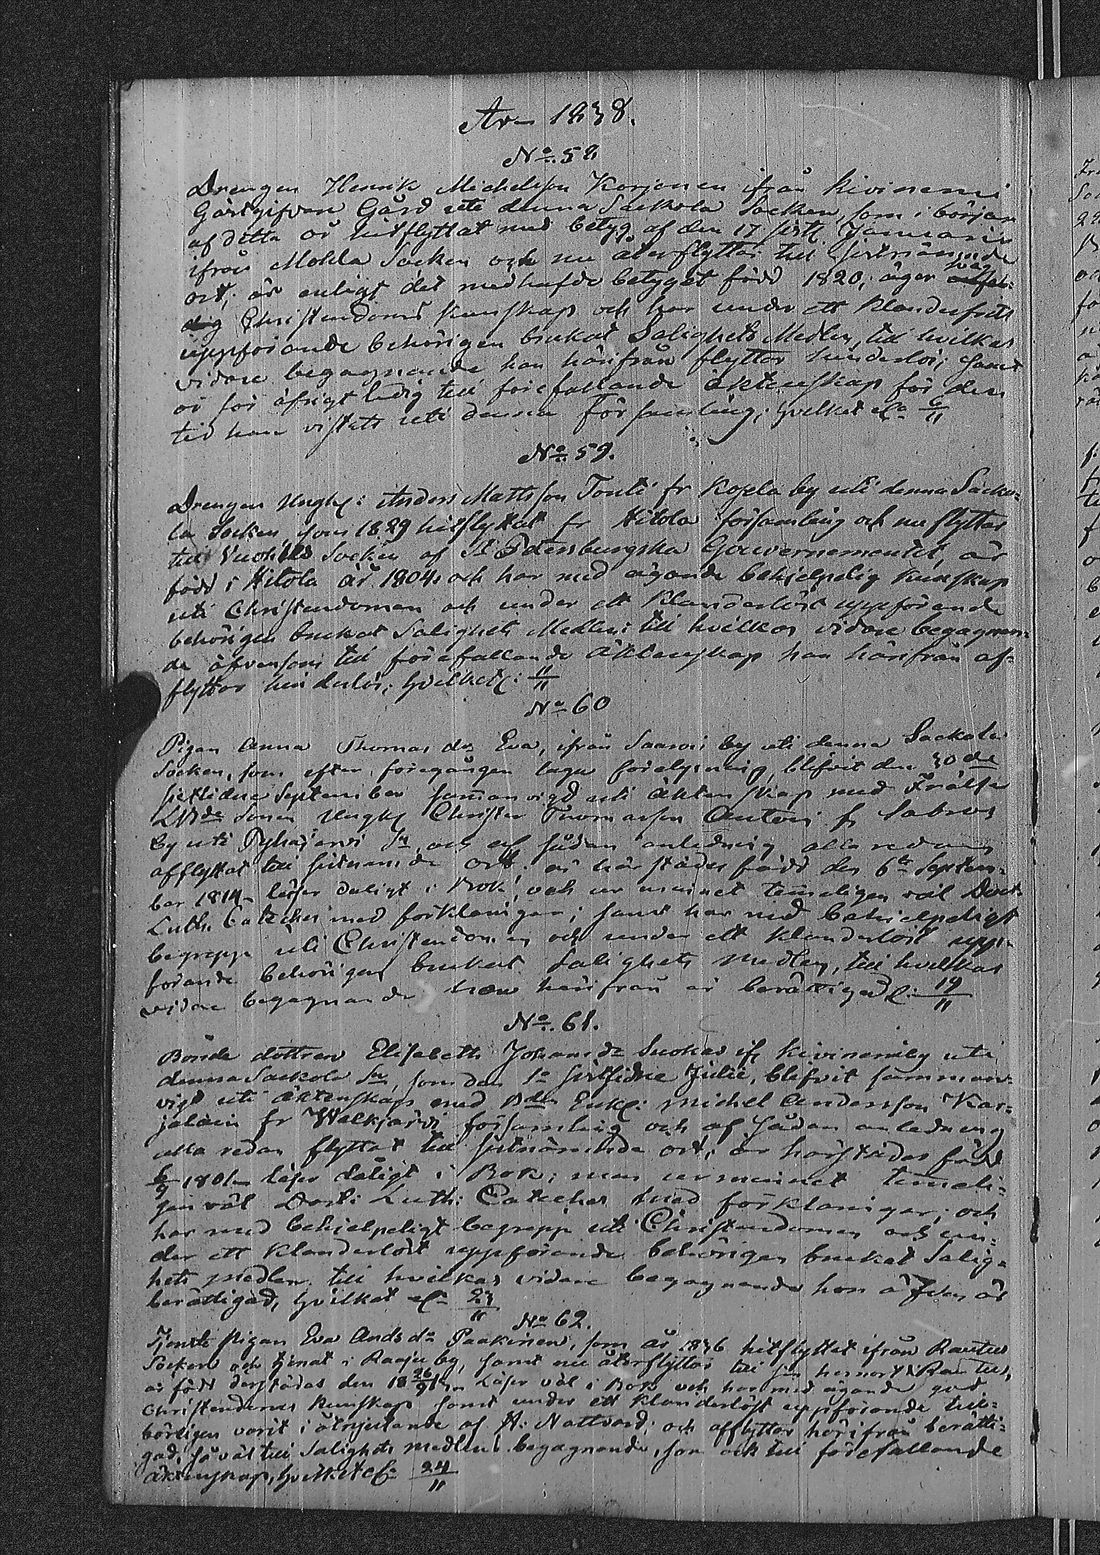 År 1838.
No. 58
Drengen Henrik Michelsson Korjonen ifrån Kivinemi
Gästgifvare Gård uti denna Sackola Socken, som i början
af detta år hitflyttat med betyg af den 17 sistl. Januarii
ifrån Mohla Socken och nu återflyttar till sistnämnde
ort; är enligt det medhafde betyget född 1820; äger
Christendoms kunskap och har under ett klanderfritt
uppförande behörigen brukat Salighets Medlen, till hvilkas
vidare begagnande han härifrån flyttar hinderlös; samt
är för öfrigt ledig till förefallande äktenskap för den
tid han vistats uti denna Församling; hvilket etc. 6/11
No. 59.
Drengen Ungk: Anders Mattsson Tonti fr Kopela by uti denna Sacko-
la Socken som 1829 hitflyttat fr Hitola församling och nu flyttar
till Socken af St Petersburgska Gouvernementet, är
född i Hitola år 1804; och har med ägande behjelpelig kunskap
uti Christendomen och under ett klanderlöst uppförande
behörigen brukat Salighets Medlen; till hvilkas vidare begagnan-
de äfvensom till förefallande äktenskap han härifrån af-
flyttar hinderlös; hvilket etc: 11/11
No 60
Pigan Anna Thomas dr Eva, ifrån by uti denna Sackola
Socken, som efter föregången laga förelysning, blefvit den 30de
sistlidne September sammanvigd uti äktenskap med Frälse
sonen Ungk: Christer Thomasson Anttoi fr
by uti Pyhäjärvi Sn, och af sådan anledning alla redan
afflyttat till sistnämnde ort, är härstädes född den 6te Septem-
ber 1814 läser dåligt i Bok, och ur minnet temmeligen väl Doct.
Luth. Cateches med förklaringar; samt har med behjelpeligt
begrepp uti Christendomen och under ett klanderlöst upp-
förande behörigen brukat Salighets Medlen, till hvilkas
vidare begagnande hon härifrån är berättigad etc 19/11
No. 61.
Bonde dottren Elisabeth Johans dr Suokas ifr Kivinemi by uti
denna Sackola Sn, som den 1 sistlidne Julii, blefvit samman-
vigd uti äktenskap med Bde Enkl: Michel Andersson Kar-
jalain fr Walkjärvi församling och af sådan anledning
alla redan flyttat till sistnämnde ort; är härstädes född
1801 läser dåligt i Bok; men ur minnet temeli-
gen väl Doct: Luth: Cateches med förklaringar; och
har med behjelpeligt begrepp uti Christendomen och un-
der ett klanderlöst uppförande behörigen brukat Salig-
hets medlen till hvilkas vidare begagnande hon äfven är
berättigad, hvilket etc 23/11
No 62.
Tjenste Pigan Eva Ands dr Paakinen, som år 1836 hitflyttat ifrån Rautus
Socken och tjenat i Raaju by, samt nu återflyttar till sin hemort Rautus,
är född derstädes den läser väl i Bok och har med ägande god
Christendoms kunskap samt under ett klanderlöst uppförande till-
börligen varit i åtnjutande af H. Nattvard; och afflyttar härifrån berätti-
gad, så väl till Salighets medlens begagnande, som och till förefallande
äktenskap, hvilket etc 24/11